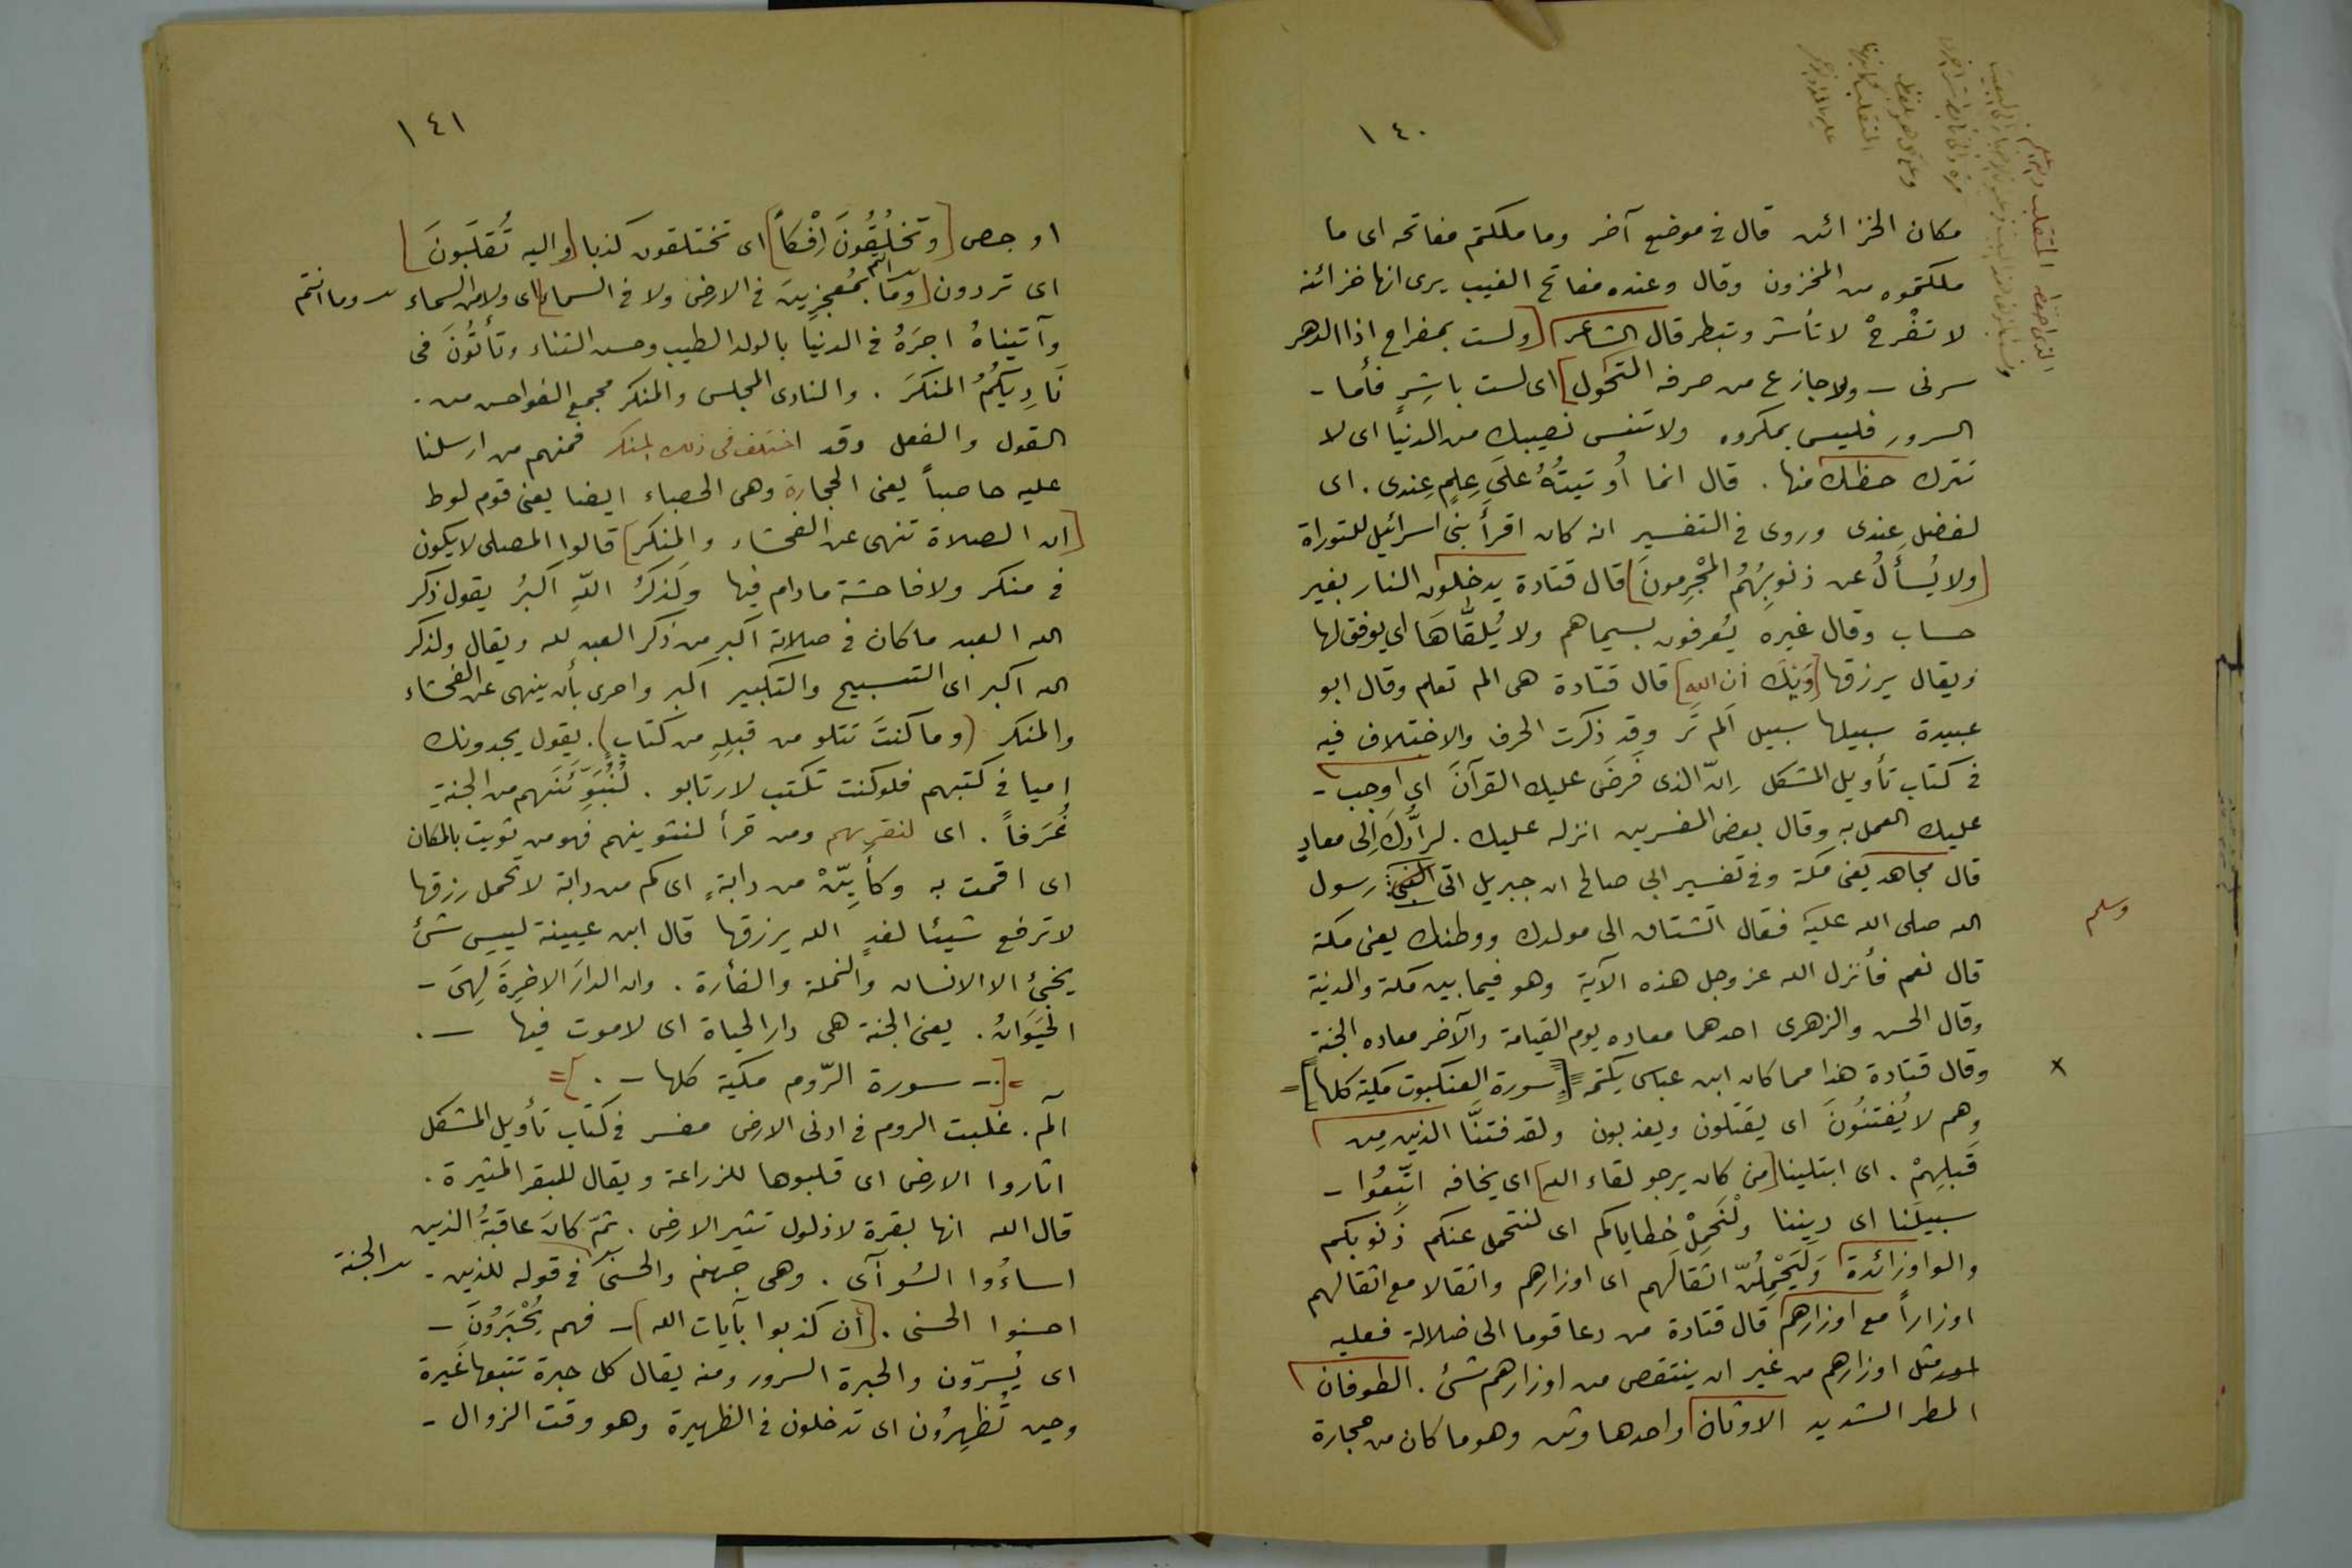 ١٤٠
مكان الخزائن قال في موضع آخر وما ملكتم مفاتحه اى ما
ملكتموه من المخزون وقال وعنده مفاتح الغيب يرى انها خزائنه
لا تفْرحْ لا تأشر وتبطر قال الشاعر [ولست بمفراح اذا الدهر
سرنى - ولا جازع من صرفه التحول] اى لست باشِرٍ فأما -
السرور فليس بمكروه ولا تنس نصيبك من الدنيا اى لا
تترك حظك منها . قال انما اُوتيتُهُ عَلىَ عِلمٍ عِندى . اى
لفضل عِندى وروى في التفسير انه كان اقرأ بنى اسرائيل للتوراة
[ولا يُسأَلُ عن ذنوبِهُمُ المْجرِمونَ] قال قتادة يدخلون النار بغير
حساب وقال غيره يُعرفون بسيماهم ولا يُلقَّاهَا اى يوفق لها
ويقال يرزقها [وَيْكَ أن اللهِ] قال قتادة هى الم تعلم وقال ابو
عبيدة سبيلها سبيل اَلم تَر وقد ذكرت الحرف والاختلاف فيه
في كتاب تأويل المشكل إنّ الذى فَرضَ عليك القرآنَ اى اوجب -
عليك العمل به وقال بعض المفسرين انزله عليك . لرآدُّكَ إلى معادٍ
قال مجاهد يعنى مكة وفى تفسير ابى صالح ان جبريل اتى النبى رسول
الله صلى الله عليه فقال اتشتاق الى مولدك ووطنك يعنى مكة
وسلم
قال نعم فأنزل الله عز وجل هذه الآية وهو فيما بين مكة والمدينة
وقال الحسن والزهرى احدهما معاده يوم القيامة والآخر معاده الجنة
وقال قتادة هذا مما كان ابن عباس يكتمه =[سورة العنكبوت مكية كلها]=
وهم لا يُفتنُونَ اى يقتلون ويعذبون ولقد فتنَّا الذين مِن
قَبلِهِمْ . اى ابتلينا [من كان يرجو لقاء الله] اى يخافه اتَّبِعُوا -
سبيلَنا اى ديننا ولْنَحمِلْ خطاياكم اى لنتحمل عنكم ذنوبكم
والواو زائدة وَلَيَحْمِلُنّ اثقالَهم اى اوزارهم واثقالا مع اثقالهم
اوزاراً مع اوزارهم قال قتادة من دعا قوما الى ضلالة فعليه
مثل اوزارهم من غير ان ينتقص من اوزارهم شئ . الطوفان
المطر الشديد الاوثان واحدها وثن وهو ما كان من حجارة
١٤١
او جص [وتخلُقُونَ اِفْكاً] اى تختلقون كذبا [واليه تُقلَبونَ]
اى تردون [ومَا انتم بمُعجزِينَ في الارض ولا في السماء] اى ولا من السماء وما انتم
وآتيناهُ اجرَهُ في الدنيا بالولد الطيب وحسن الثناء وتأتُونَ فى
نَادِيكُمُ المنكَرَ . والنادى المجلس والمنكر مجمع الفواحش من .
القول والفعل وقد اختلف فى ذلك المنكر فمنهم من ارسلنا
عليه حاصباً يعنى الحجارة وهى الحصباء ايضا يعنى قوم لوط
[ان الصلاة تنهى عن الفحشاء والمنكر] قالوا المصلى لا يكون
في منكر ولا فاحشة ما دام فيها وَلذكرُ اللّهِ اكبرُ يقول ذكر
الله العبد ما كان في صلاته اكبر من ذكر العبد لله ويقال ولذكر
الله اكبر اى التسبيح والتكبير اكبر واحرى بأن ينهى عن الفحشاء
والمنكر (وما كنتَ تتلو من قبلِهِ من كتابٍ) . يقول يجدونك
اميا في كتبهم فلو كنت تكتب لارتابو . لنُبَوِّئَنَهم من الجنةِ
غُرَفاً . اى لنقرينهم ومن قرأ لنثوينهم فهو من ثويت بالمكان
اى اقمت به وكأَيِّنْ من دابةٍ اى كم من دابة لا تحمل رزقها
لا ترفع شيئا لغدٍ الله يرزقها قال ابن عيينة ليس شئ
يخبئ الا الانسان والنملة والفأرة . وان الدارَ الاخِرَةَ لِهىَ -
الحَيَوَانُ . يعنى الجنة هى دار الحياة اى لا موت فيها - .
=[- سورة الرّوم مكية كلها - .]=
الٓم . غُلبت الروم في ادنى الارض مفسر في كتاب تأويل المشكل
اثاروا الارض اى قلبوها للزراعة ويقال للبقر المثيرة .
قال الله انها بقرة لا ذلول تثير الارض . ثمّ كانَ عاقبةُ الذين
اساءُوا السُوآى . وهى جهنم والحسنى في قوله للذين - الجنة
احسنوا الحسنى . [أن كذبوا بآيات الله] - فهم يُحْبَرُونَ -
اى يُسرّون والحبرة السرور ومنه يقال كل حبرة تتبعها غَيرة
وحين تُظهِرُون اى تدخلون في الظهيرة وهو وقت الزوال -